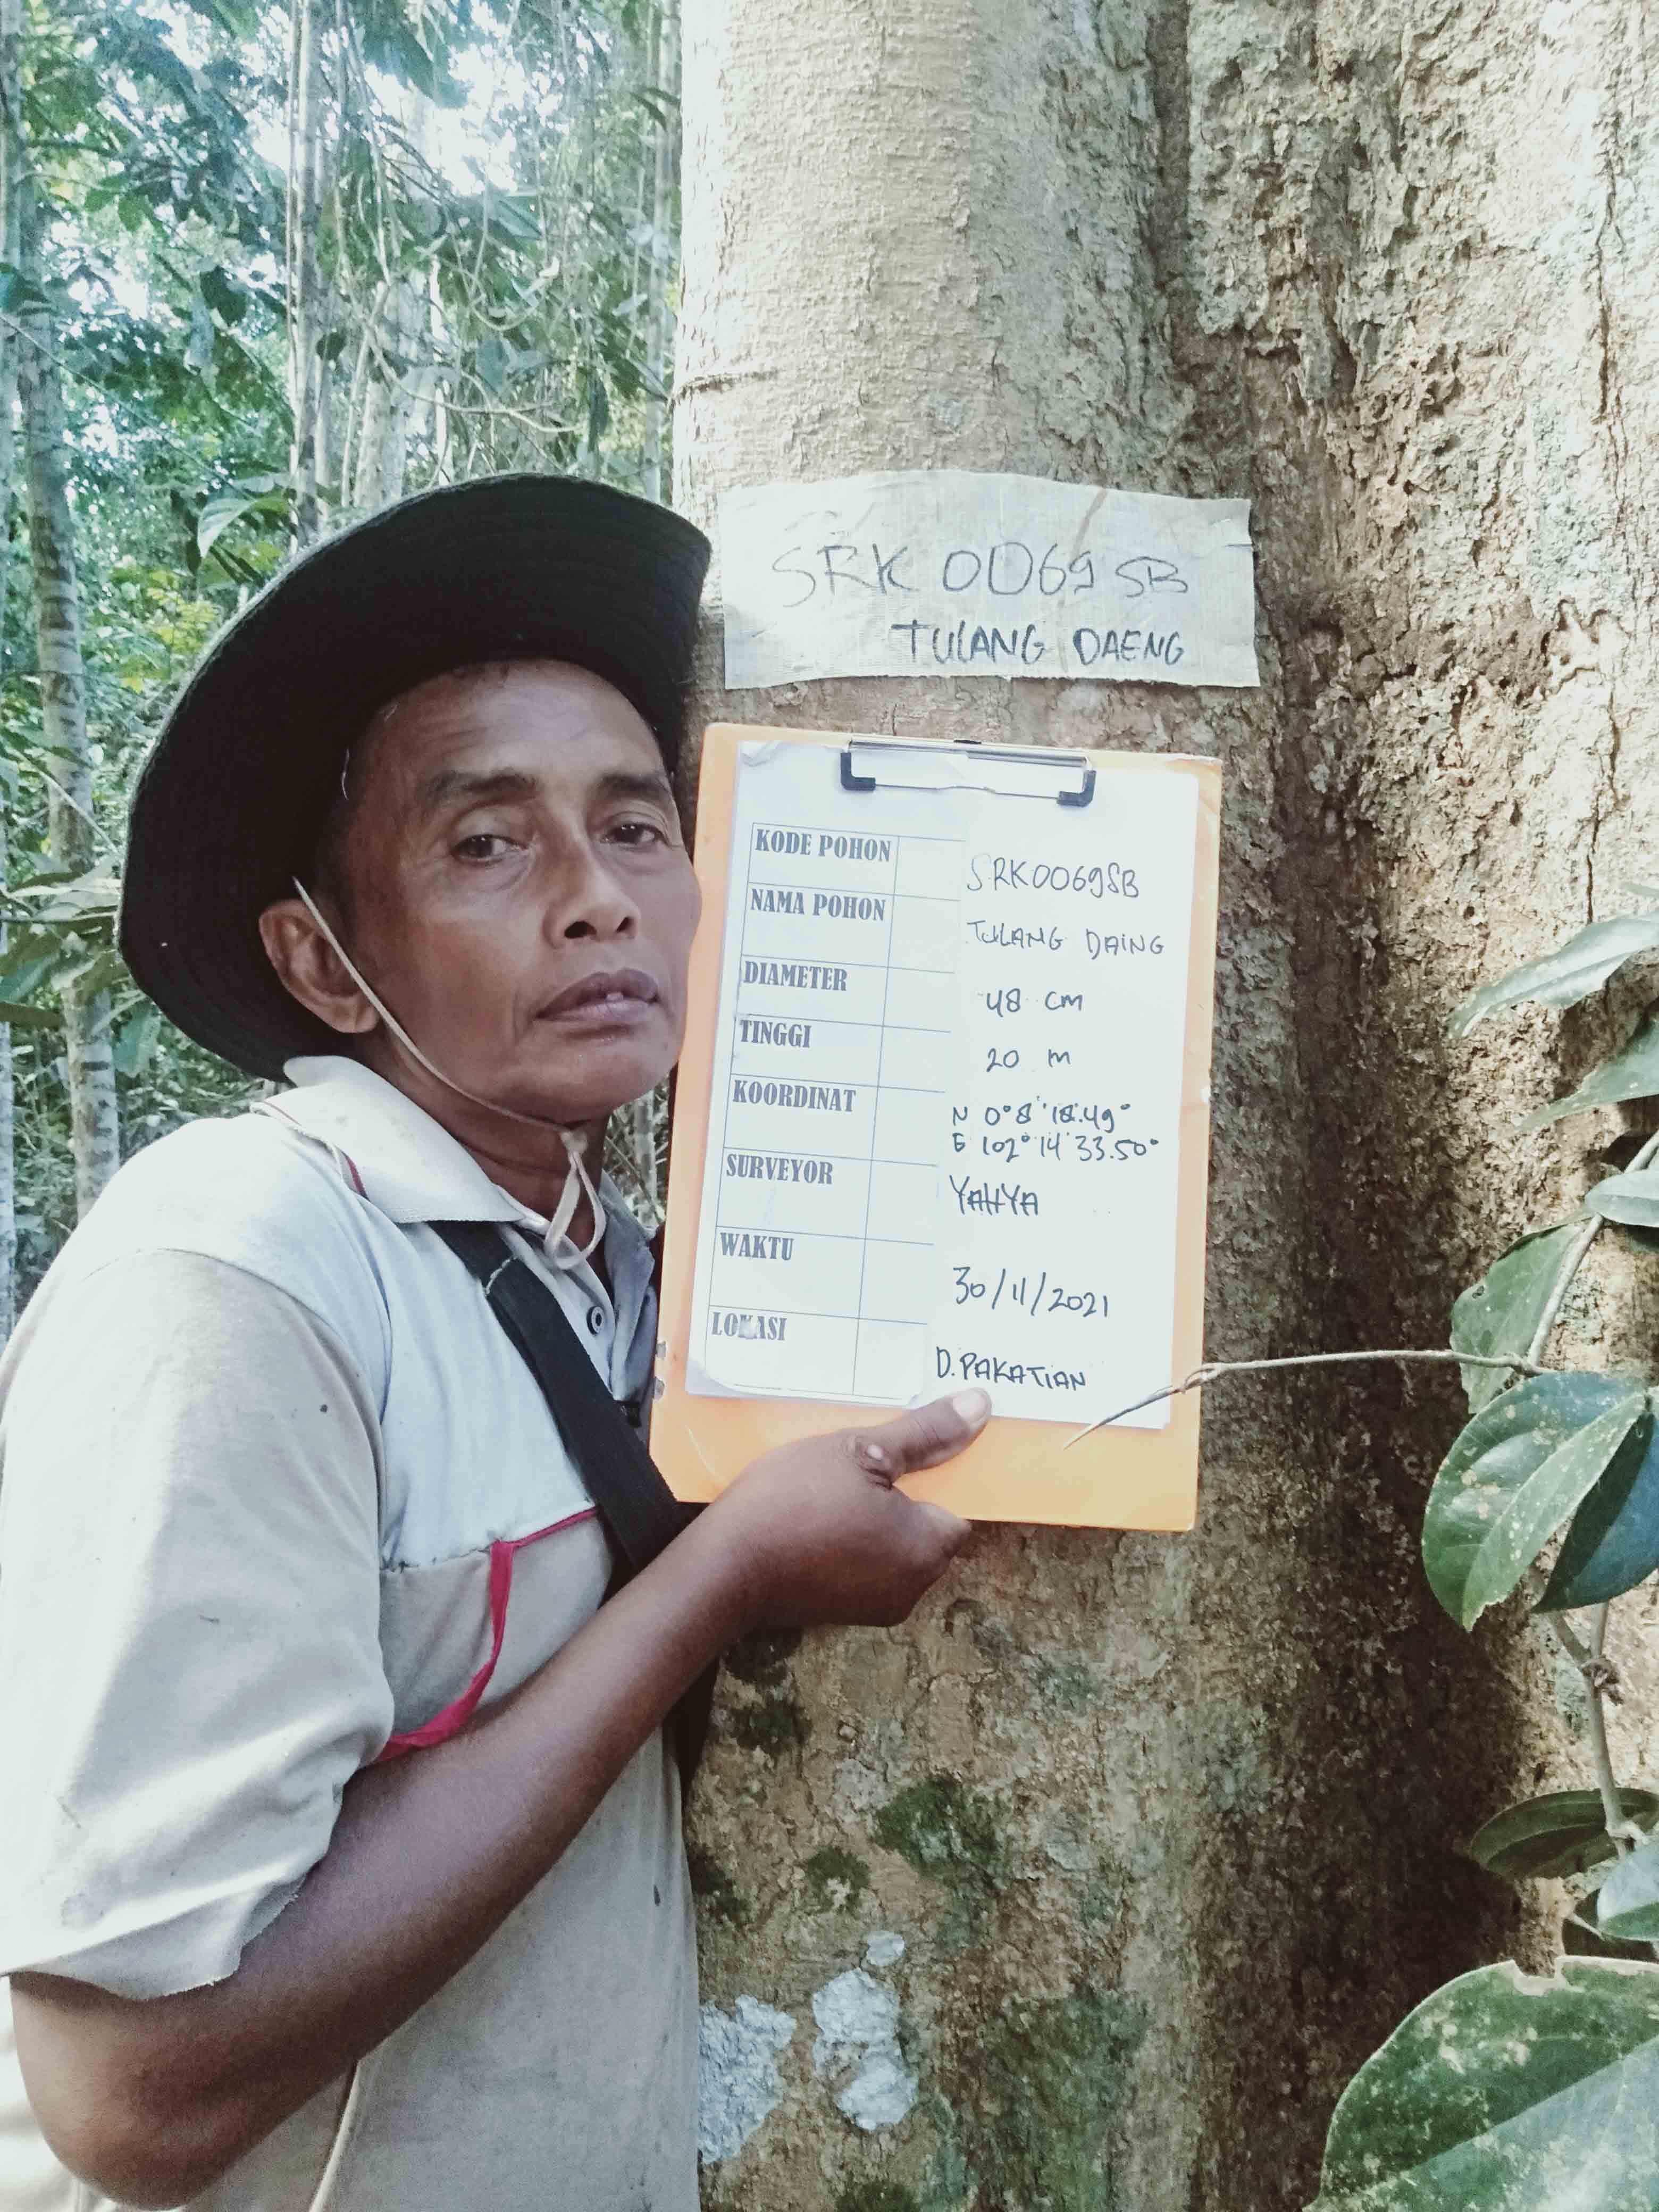 SRK 0069 SB
TULANG DAENG
KODE POHON SRK0069SB
NAMA POHON TULANG DAING
DIAMETER 48 cm
TINGGI 20 m
KOORDINAT N 0°8'18.49"
E 102°14'33.50"
SURVEYOR YAHYA
WAKTU 30/11/2021
LOKASI D.PAKATIAN